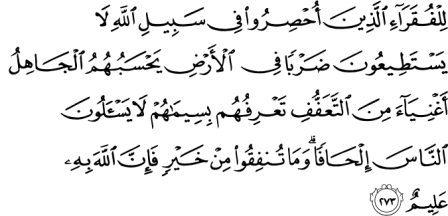 لِلْفُقَرَآءِ الَّذِينَ أُحْصِرُوا۟ فِى سَبِيلِ اللَّهِ لَا
يَسْتَطِيعُونَ ضَرْبًا فِى الْأَرْضِ يَحْسَبُهُمُ الْجَاهِلُ
أَغْنِيَآءَ مِنَ التَّعَفُّفِ تَعْرِفُهُم بِسِيمَٰهُمْ لَا يَسْـَٔلُونَ
النَّاسَ إِلْحَافًا ۗ وَمَا تُنفِقُوا۟ مِنْ خَيْرٍ فَإِنَّ اللَّهَ بِهِۦ
عَلِيمٌ ٢٧٣